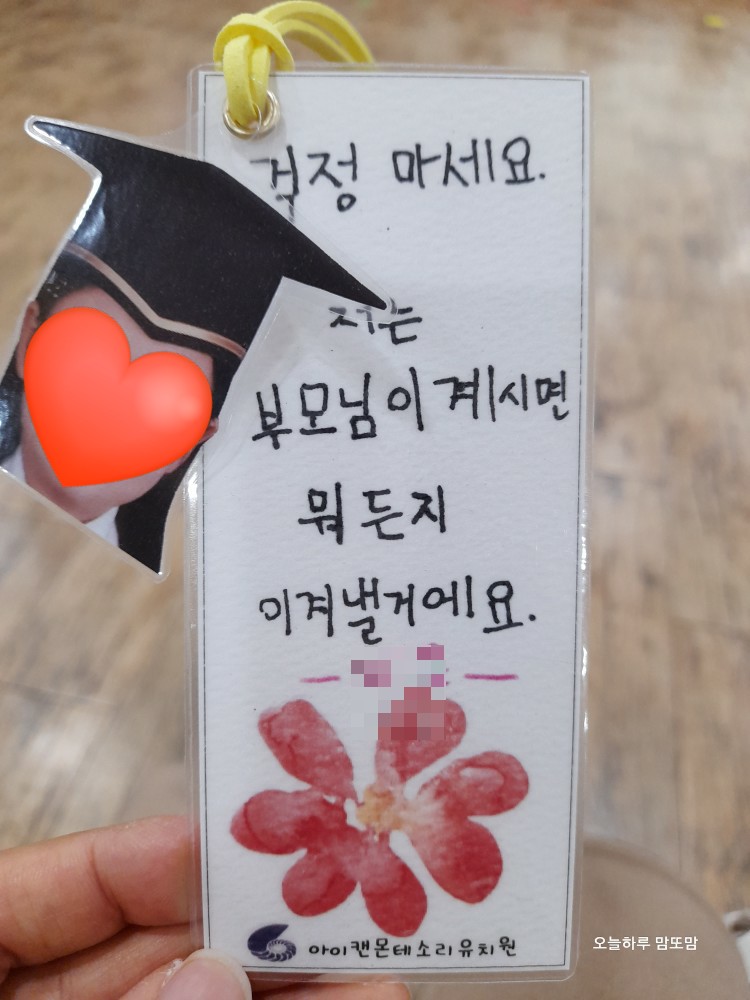 걱정 마세요.
저는
부모님이 계시면
뭐든지
이겨낼거에요.
아이캔몬테소리유치원
오늘하루 맘또맘